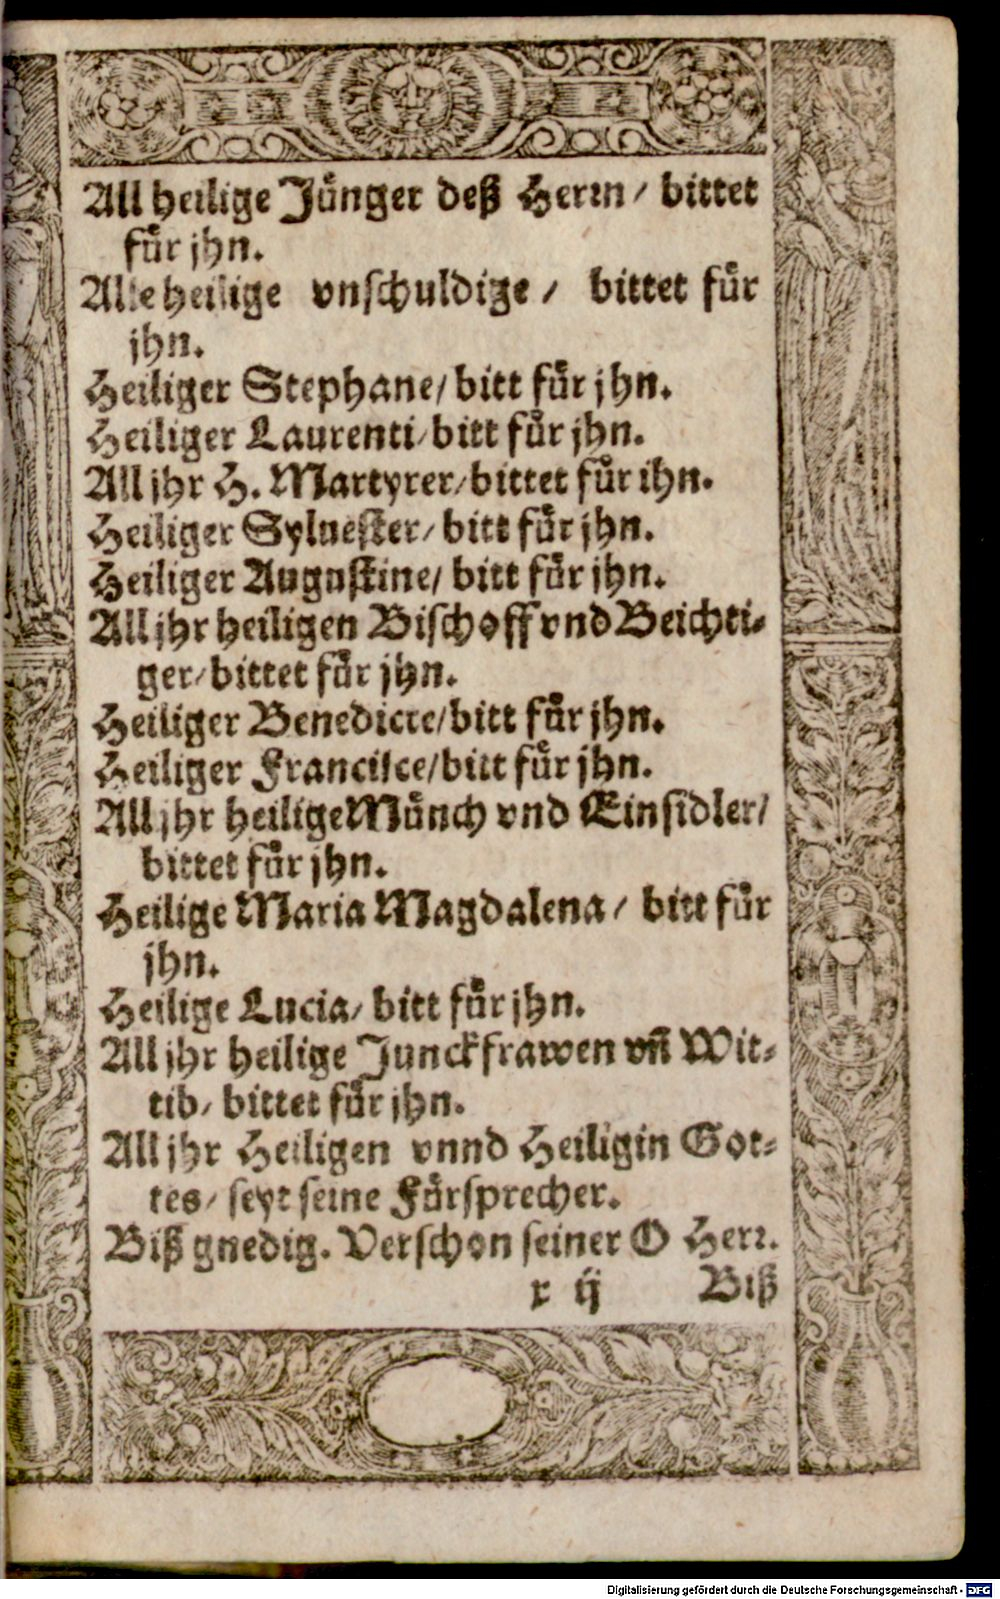 All heilige Jünger deß Herrn / bittet
für jhn.
Alle heilige vnschuldige / bittet für
jhn.
Heiliger Stephane / bitt für jhn.
Heiliger Laurenti / bitt für jhn.
All jhr H. Martyrer / bittet für ihn.
Heiliger Syluester / bitt für jhn.
Heiliger Augustine / bitt für jhn.
All jhr heiligen Bischoff vnd Beichti-
ger / bittet für jhn.
Heiliger Benedicte / bitt für jhn.
Heiliger Francisce / bitt für jhn.
All jhr heilige Münch vnd Einsidler /
bittet für jhn.
Heilige Maria Magdalena / bitt für
jhn.
Heilige Lucia / bitt für jhn.
All jhr heilige Junckfrawen vñ Wit-
tib / bittet für jhn.
All jhr Heiligen vnnd Heiligin Got-
tes / seyt seine Fürsprecher.
Biß gnedig. Verschon seiner O Herr.
r ij Biß
Digitalisierung gefördert durch die Deutsche Forschungsgemeinschaft - DFG